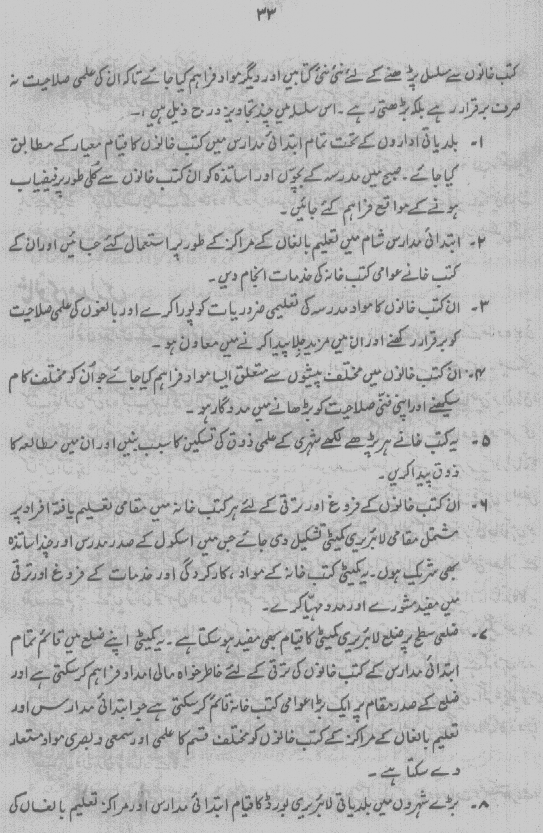 ۳۳
کتب خانوں سے مسلسل پڑھنے کے لئے نئی نئی کتابیں اور دیگر مواد فراہم کیا جائے تاکہ ان کی علمی صلاحیت نہ
صرف برقرار رہے بلکہ بڑھتی رہے۔ اس سلسلہ میں چند تجاویز درج ذیل ہیں :۔
۱۔ بلدیاتی اداروں کے تحت تمام ابتدائی مدارس میں کتب خانوں کا قیام معیار کے مطابق
کیا جائے۔ صبح میں مدرسہ کے بچوں اور اساتذہ کو ان کتب خانوں سے کلی طور پر فیضیاب
ہونے کے مواقع فراہم کئے جائیں۔
۲۔ ابتدائی مدارس شام میں تعلیم بالغاں کے مراکز کے طور پر استعمال کئے جائیں اور ان کے
کتب خانے عوامی کتب خانہ کی خدمات انجام دیں۔
۳۔ ان کتب خانوں کا مواد مدرسہ کی تعلیمی ضروریات کو پورا کرے اور بالغوں کی علمی صلاحیت
کو برقرار رکھنے اور ان میں مزید جلا پیدا کرنے میں معاون ہو۔
۴۔ ان کتب خانوں میں مختلف پیشوں سے متعلق ایسا مواد فراہم کیا جائے جو اُن کو مختلف کام
سیکھنے اور اپنی فنی صلاحیت کو بڑھانے میں مددگار ہو۔
۵۔ یہ کتب خانے ہر پڑھے لکھے شہری کے علمی ذوق کی تسکین کا سبب بنیں اور ان میں مطالعہ کا
ذوق پیدا کریں۔
۶۔ ان کتب خانوں کے فروغ اور ترقی کے لئے ہر کتب خانہ میں مقامی تعلیم یافتہ افراد پر
مشتمل مقامی لائبریری کمیٹی تشکیل دی جائے جس میں اسکول کے صدر مدرس اور چند اساتذہ
بھی شریک ہوں۔ یہ کمیٹی کتب خانہ کے مواد، کارکردگی اور خدمات کے فروغ اور ترقی
میں مفید مشورے اور مدد مہیا کرے۔
۷۔ ضلعی سطح پر ضلع لائبریری کمیٹی کا قیام بھی مفید ہو سکتا ہے۔ یہ کمیٹی اپنے ضلع میں قائم تمام
ابتدائی مدارس کے کتب خانوں کی ترقی کے لئے خاطر خواہ مالی امداد فراہم کر سکتی ہے اور
ضلع کے صدر مقام پر ایک بڑا عوامی کتب خانہ قائم کر سکتی ہے جو ابتدائی مدارس اور
تعلیم بالغاں کے مراکز کے کتب خانوں کو مختلف قسم کا علمی اور سمعی و بصری مواد مستعار
دے سکتا ہے۔
۸۔ بڑے شہروں میں بلدیاتی لائبریری بورڈ کا قیام ابتدائی مدارس اور مراکز تعلیم بالغاں کی